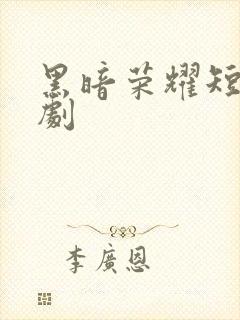 黑暗荣耀短
劇
李廣恩